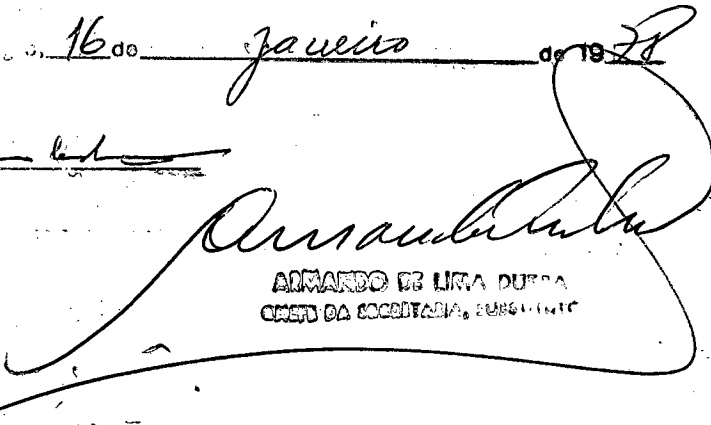 16 de Janeiro de 1978
ARMANDO DE LIMA DUTRA
CHEFE DA SECRETARIA, SUBSTITUTO